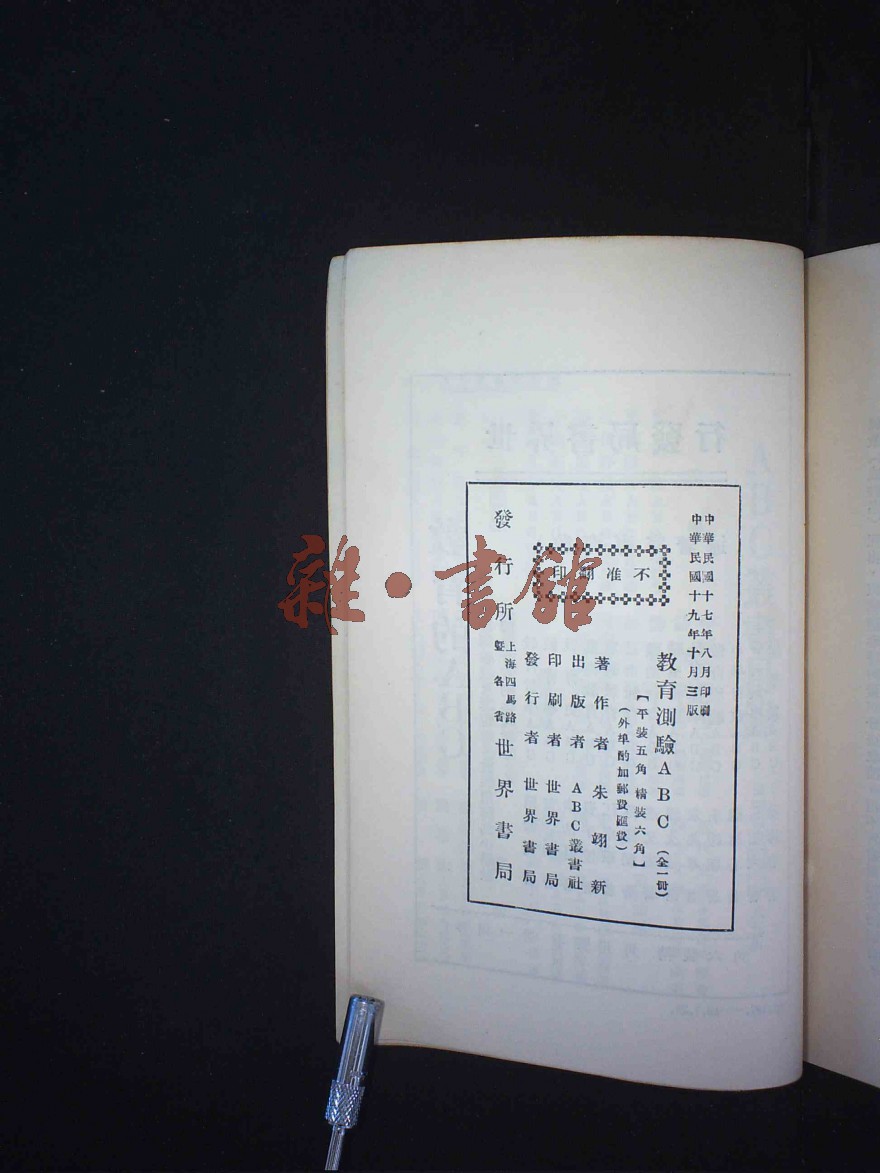 中華民國十七年八月印刷
中華民國十九年十月三版
教育測驗ABC（全一冊）
【平裝五角 精裝六角】
（外埠酌加郵費匯費）
不准翻印
著作者 朱翊新
出版者 ABC叢書社
印刷者 世界書局
發行者 世界書局
發行所
上海四馬路
暨各省
世界書局
雜·書館
世界書局發行